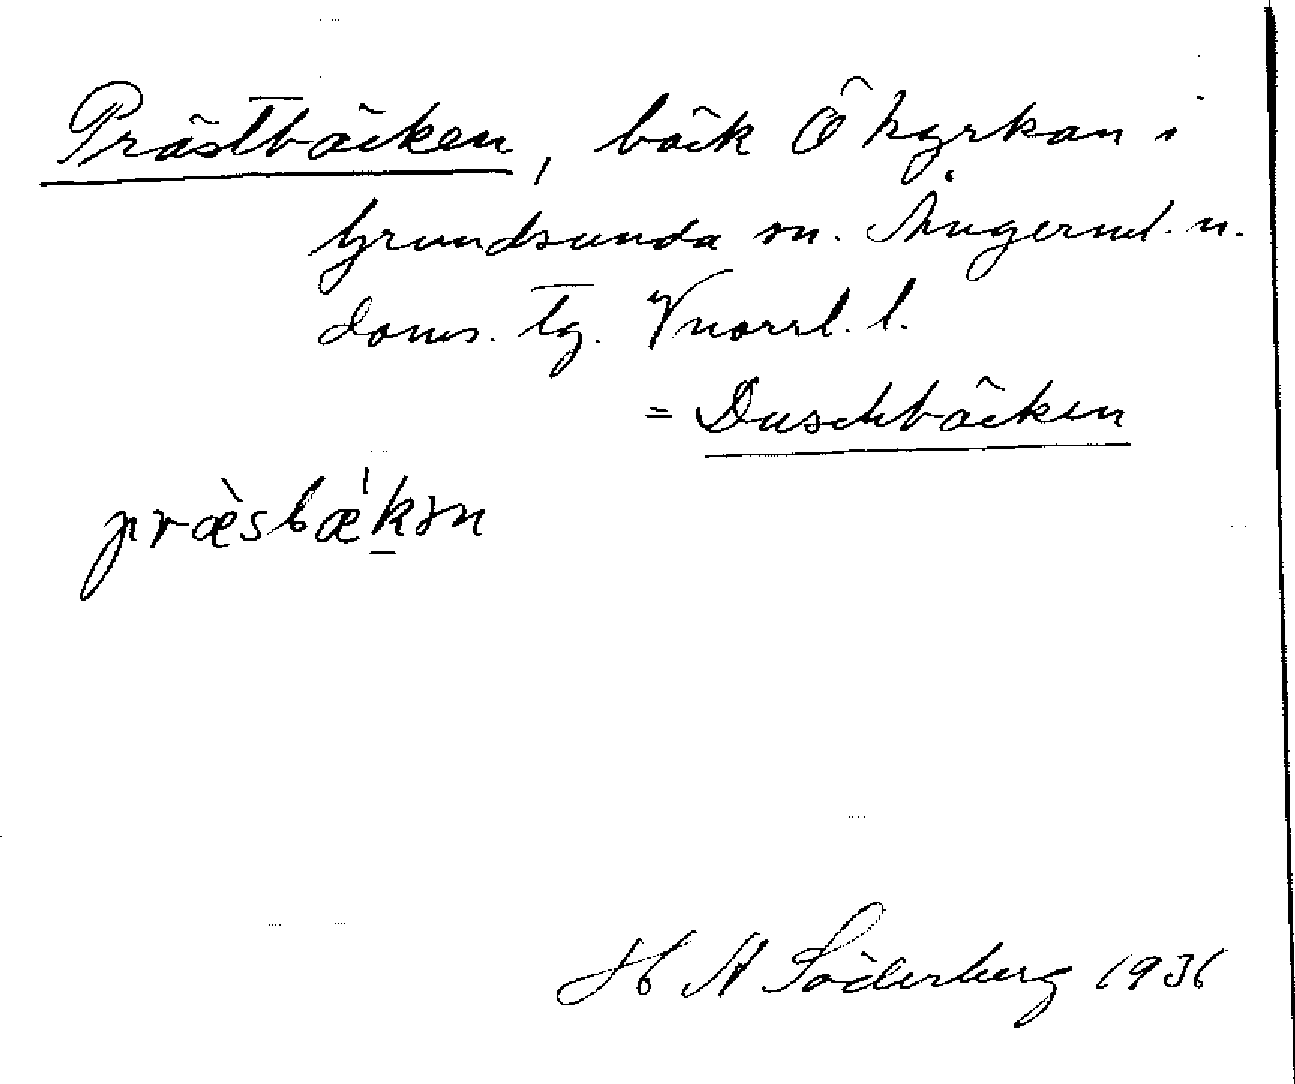 Prästbäcken, bäck Ö kyrkan i
Grundsunda sn. Ångerml. n.
doms. tg. Vnorrl. l.
= Duschbäcken
præ̀sbæ̍k̠ən
H A Söderberg 1936